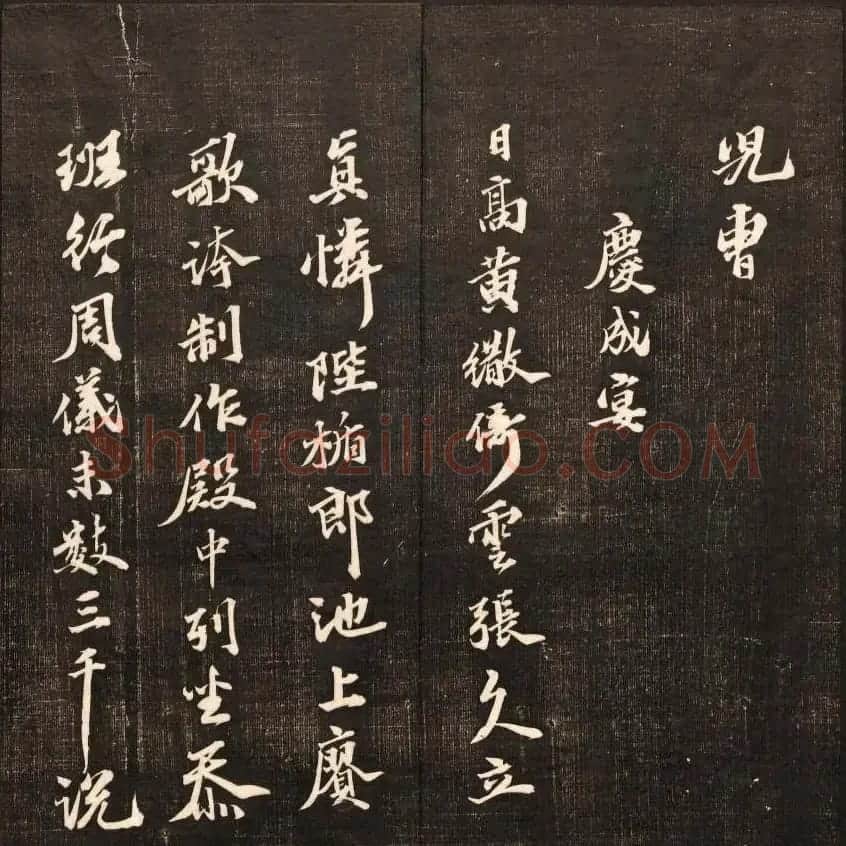 児曹
慶成宴
日高黄繖衛雲張久立
真憐陛楯郎池上賡
歌誇制作殿中列坐忝
班行周儀未數三千説
Shufaziliao.COM